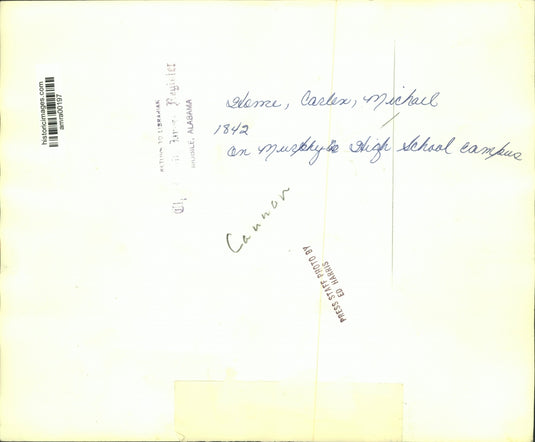 historicimages.com
amra00197
RETURN TO LIBRARIAN
Press Register
MOBILE, ALABAMA
Home, Carlen, Michael
1842
On Murphy's High School campus
Cannon
PRESS STAFF PHOTO BY
ED HARRIS